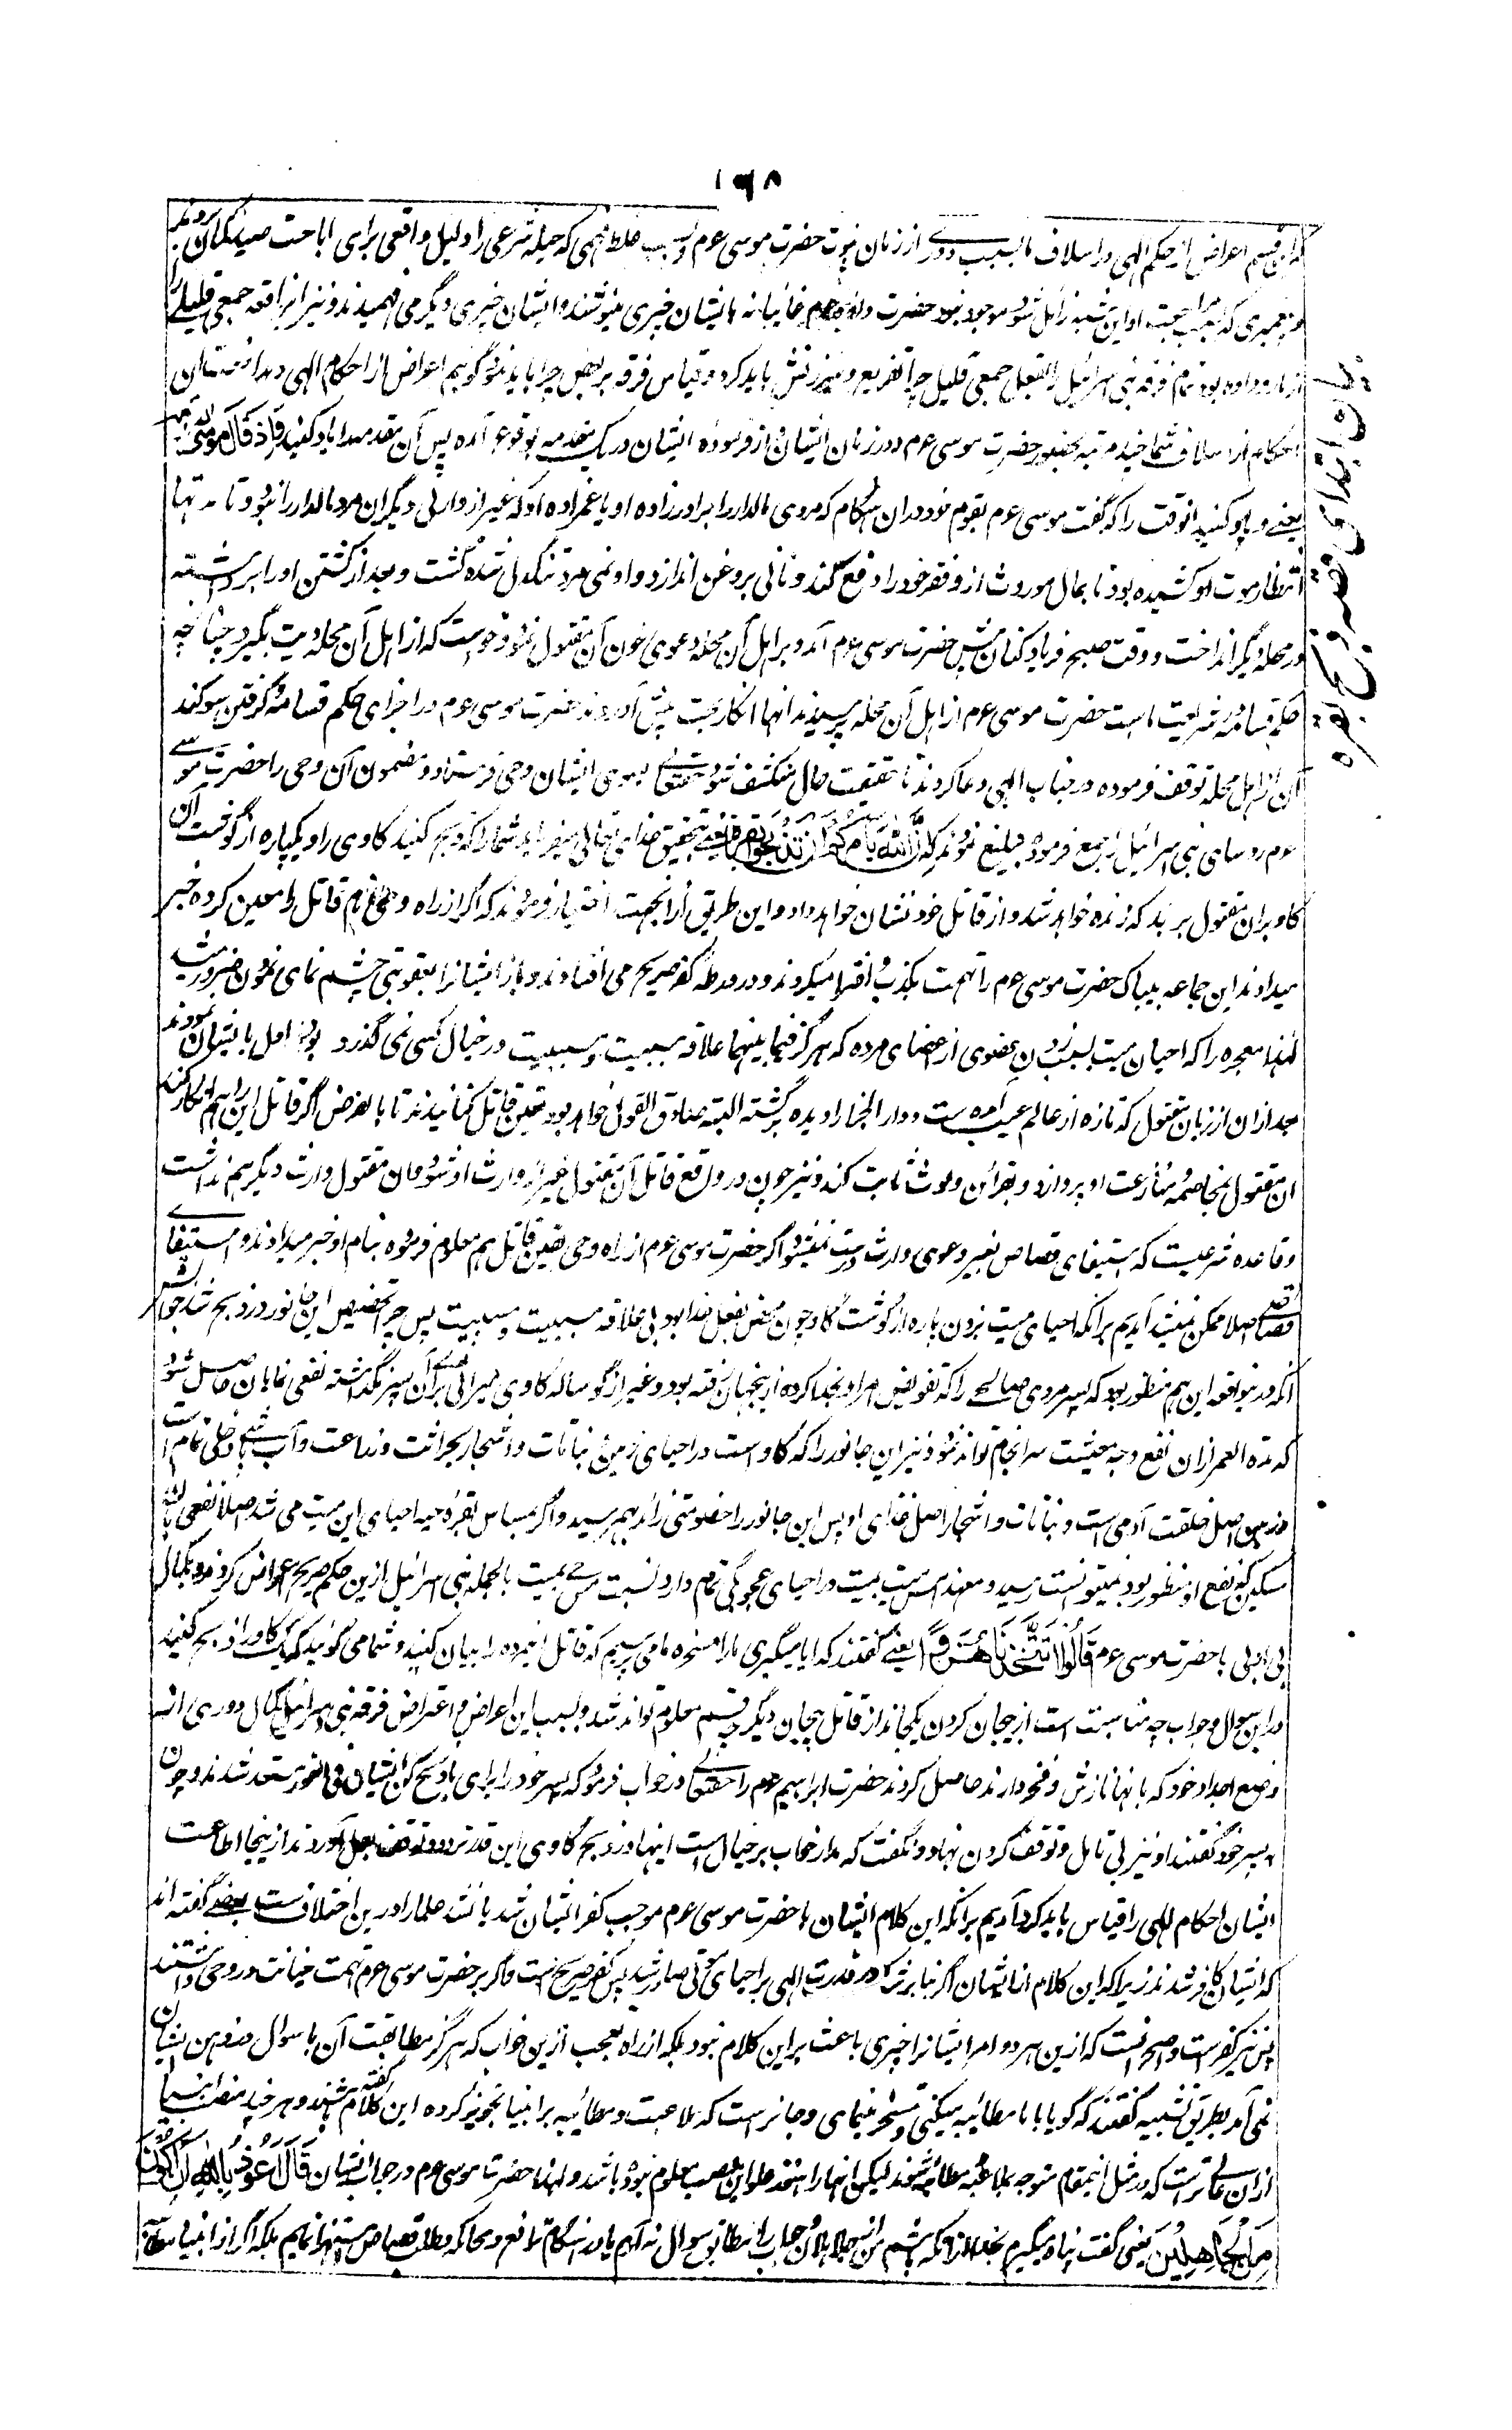 ۱۶۸
که این قسم اعراض از حکم الهی در اسلاف ما بسبب دوری از زمان نبوت حضرت موسی عم و بسبب غلط فهمی که حیله شرعی را دلیل واقعی برای اباحت صید گمان بردند
و پیغمبری که بسبب مراجعت او این شبه زائل شود موجود نبود حضرت داؤد عم غائبانه بایشان چیزی می‌نوشتند و ایشان چیزی دیگر می فهمیدند و نیز این واقعه جمعی قلیل را
از ما رو داده بود تمام فرقه بنی اسرائیل را بفعل جمعی قلیل چرا تقریع و سرزنش باید کرد و قیاس فرقه بر بعض چرا باید نمود گوئیم اعراض از احکام الهی و
احکام از اسلاف شما چند مرتبه بحضور حضرت موسی عم و در زمان ایشان و از فرموده ایشان در یک مقدمه بوقوع آمده پس آن مقدمه را یاد کنید وَاِذْ قَالَ مُوْسٰی لِقَوْمِهٖ
یعنی و یاد کنید آنوقت را که گفت موسی عم بقوم خود در آن هنگام که مردی مالدار را برادرزاده او یا عمزاده او که غیر از وارثی دیگر آن مرد مالدار را نبود و تا مدتها
انتظار موت او کشیده بود تا بمال موروث از و فقر خود را دفع کند و نانی بروغن اندازد و او نمی مرد تنگدل شده کشت و بعد از کشتن او را برداشته
در محله دیگر انداخت و وقت صبح فریاد کنان پیش حضرت موسی عم آمد و بر اهل آن محله دعوی خون آن مقتول نمود و خواست که از اهل آن محله دیت بگیرد چنانچه
حکم قسامه در شریعت ماست حضرت موسی عم از اهل آن محله پرسیدند آنها انکار بحت پیش آوردند حضرت موسی عم در اجرای حکم قسامه و گرفتن سوگند
آن از اهل محله توقف فرموده در جناب الهی دعا کردند تا حقیقت حال منکشف شود حقتعالی بسوی ایشان وحی فرستاد و مضمون آن وحی را حضرت موسی
عم روسای بنی اسرائیل را جمع فرموده تبلیغ نمودند که اِنَّ اللّٰهَ یَاْمُرُکُمْ اَنْ تَذْبَحُوْا بَقَرَةً یعنی بتحقیق خدای تعالی میفرماید شما را که ذبح کنید گاوی را و یکپاره از گوشت آن
گاو بران مقتول بزنید که زنده خواهد شد و از قاتل خود نشان خواهد داد و این طریق را از آنجهت اختیار فرمودند که اگر از راه وحی نام قاتل را معین کرده خبر
میدادند این جماعه بیباک حضرت موسی عم را تهمت بکذب و افترا میکردند و در ورطه کفر صریح می افتادند و باز ایشانرا بعقوبتی چشم نمای نمودن ضرور میشد
لهذا معجزه را که احیای میت بسبب زدن عضوی از اعضای مرده که هرگز فیمابینهما علاقه سببیت و مسببیت در خیال کسی نمی گذرد بود اول بایشان نمودند
بعد ازان از زبان مقتول که تازه از عالم غیب آمده است و دار الجزا را دیده برگشته البته صادق القول خواهد بود تعیین قاتل کنانیدند تا بالفرض اگر قاتل این را هم انکار کند
آن مقتول بمخاصمه و منازعت او پردازد و بقرائن و لوث ثابت کند و نیز چون در واقع قاتل آن مقتول غیر از وارث او نبود و آن مقتول وارث دیگر هم نداشت
و قاعده شرعیست که استیفای قصاص بغیر دعوی وارث درست نمیشود اگر حضرت موسی عم از راه وحی تعیین قاتل هم معلوم فرموده بنام او خبر میدادند استیفای
قصاص اصلا ممکن نمیشد آمدیم برآنکه احیای میت بزدن پاره از گوشت گاو چون محض بفعل خدا بود بی علاقه سببیت و مسببیت پس چرا تخصیص این جانور در ذبح شد جوابش
آنکه درینواقعه این هم منظور بود که پسر مردی صالح را که تفویض امر او بخدا کرده ازینجهان رفته بود و غیر از گوساله گاوی میراثی برای آن پسر نگذاشته نفعی نمایان حاصل شود
که مدة العمر ازان نفع وجه معیشت سرانجام تواند نمود و نیز این جانور را که گاو است در احیای زمین و نباتات و اشجار بحراثت و زراعت و آب دخلی تمام است
و زمین اصل خلقت آدمی است و نباتات و اشجار اصل غذای او پس این جانور را خصوصیتی زائد بهم رسید و اگر بمساس بقره حیه احیای این میت می شد اصلا نفعی بآن
مسکین که نفع او منظور بود نمیتوانست رسید و معهذا مس میت بمیت در احیای عجوبگی تمام دارد نسبت مس حی بمیت بالجمله بنی اسرائیل ازین حکم صریح اعراض کردند و بکمال
بی ادبی با حضرت موسی عم قَالُوْا اَتَتَّخِذُنَا هُزُوًا یعنی گفتند که آیا میگیری ما را مسخره ما می پرسیم که قاتل این مرده را بیان کنید و شما می گوئید که یک گاو را ذبح کنید
درین سوال و جواب چه مناسبت است از بیجان کردن یک جاندار قاتل بیجان دیگر چه قسم معلوم تواند شد و بسبب این اعراض و اعتراض فرقه بنی اسرائیل کمال دوری از
وضع اجداد خود که بانها نازش و فخر دارند حاصل کردند حضرت ابراهیم عم را حقتعالی در خواب فرمود که پسر خود را برای ما ذبح کن ایشان فی الفور مستعد شدند و چون
به پسر خود گفتند او نیز بی تامل و توقف گردن نهاد و نگفت که مدار خواب بر خیال است اینها در ذبح گاوی این قدر تردد و توقف بعمل آوردند ازینجا اطاعت
ایشان احکام الهی را قیاس باید کرد آمدیم برآنکه این کلام ایشان با حضرت موسی عم موجب کفر ایشان شد یا نشد علما را درین اختلاف ست بعضی گفته اند
که ایشان کافر شدند زیرا که این کلام از ایشان اگر بنابر شک در قدرت الهی بر احیای موتی صادر شد پس کفر صریح است و اگر بر حضرت موسی عم تهمت خیانت در وحی داشتند
پس نیز کفر است و صحیح آنست که ازین هر دو امر ایشانرا چیزی باعث بر این کلام نبود بلکه از راه تعجب ازین جواب که هرگز مطابقت آن با سوال در ذهن ایشان
نمی آمد بطریق تشبیه گفتند که گویا با ما مطائبه میکنی و تمسخر مینمای و جائز است که ملاعبت و مطائبه بر انبیا تجویز کرده این کلام گفته باشند و هر چند منصب انبیا
ازان عالی تر است که در مثل اینمقام متوجه بملاعبه و مطائبه شوند لیکن آنها را اینقدر علو این منصب معلوم نبوده باشد و لهذا حضرت موسی عم در جواب ایشان قَالَ اَعُوْذُ بِاللّٰهِ اَنْ اَکُوْنَ
مِنَ الْجَاهِلِیْنَ یعنی گفت پناه میگیرم بخدا از آنکه باشم من از جاهلان جواب را مطابق سوال نه آرم یا در هنگام ترافع و محاکمه و طلب قصاص استهزا نمایم بلکه اگر از انبیا
بیان ابتدای قصه ذبح بقره